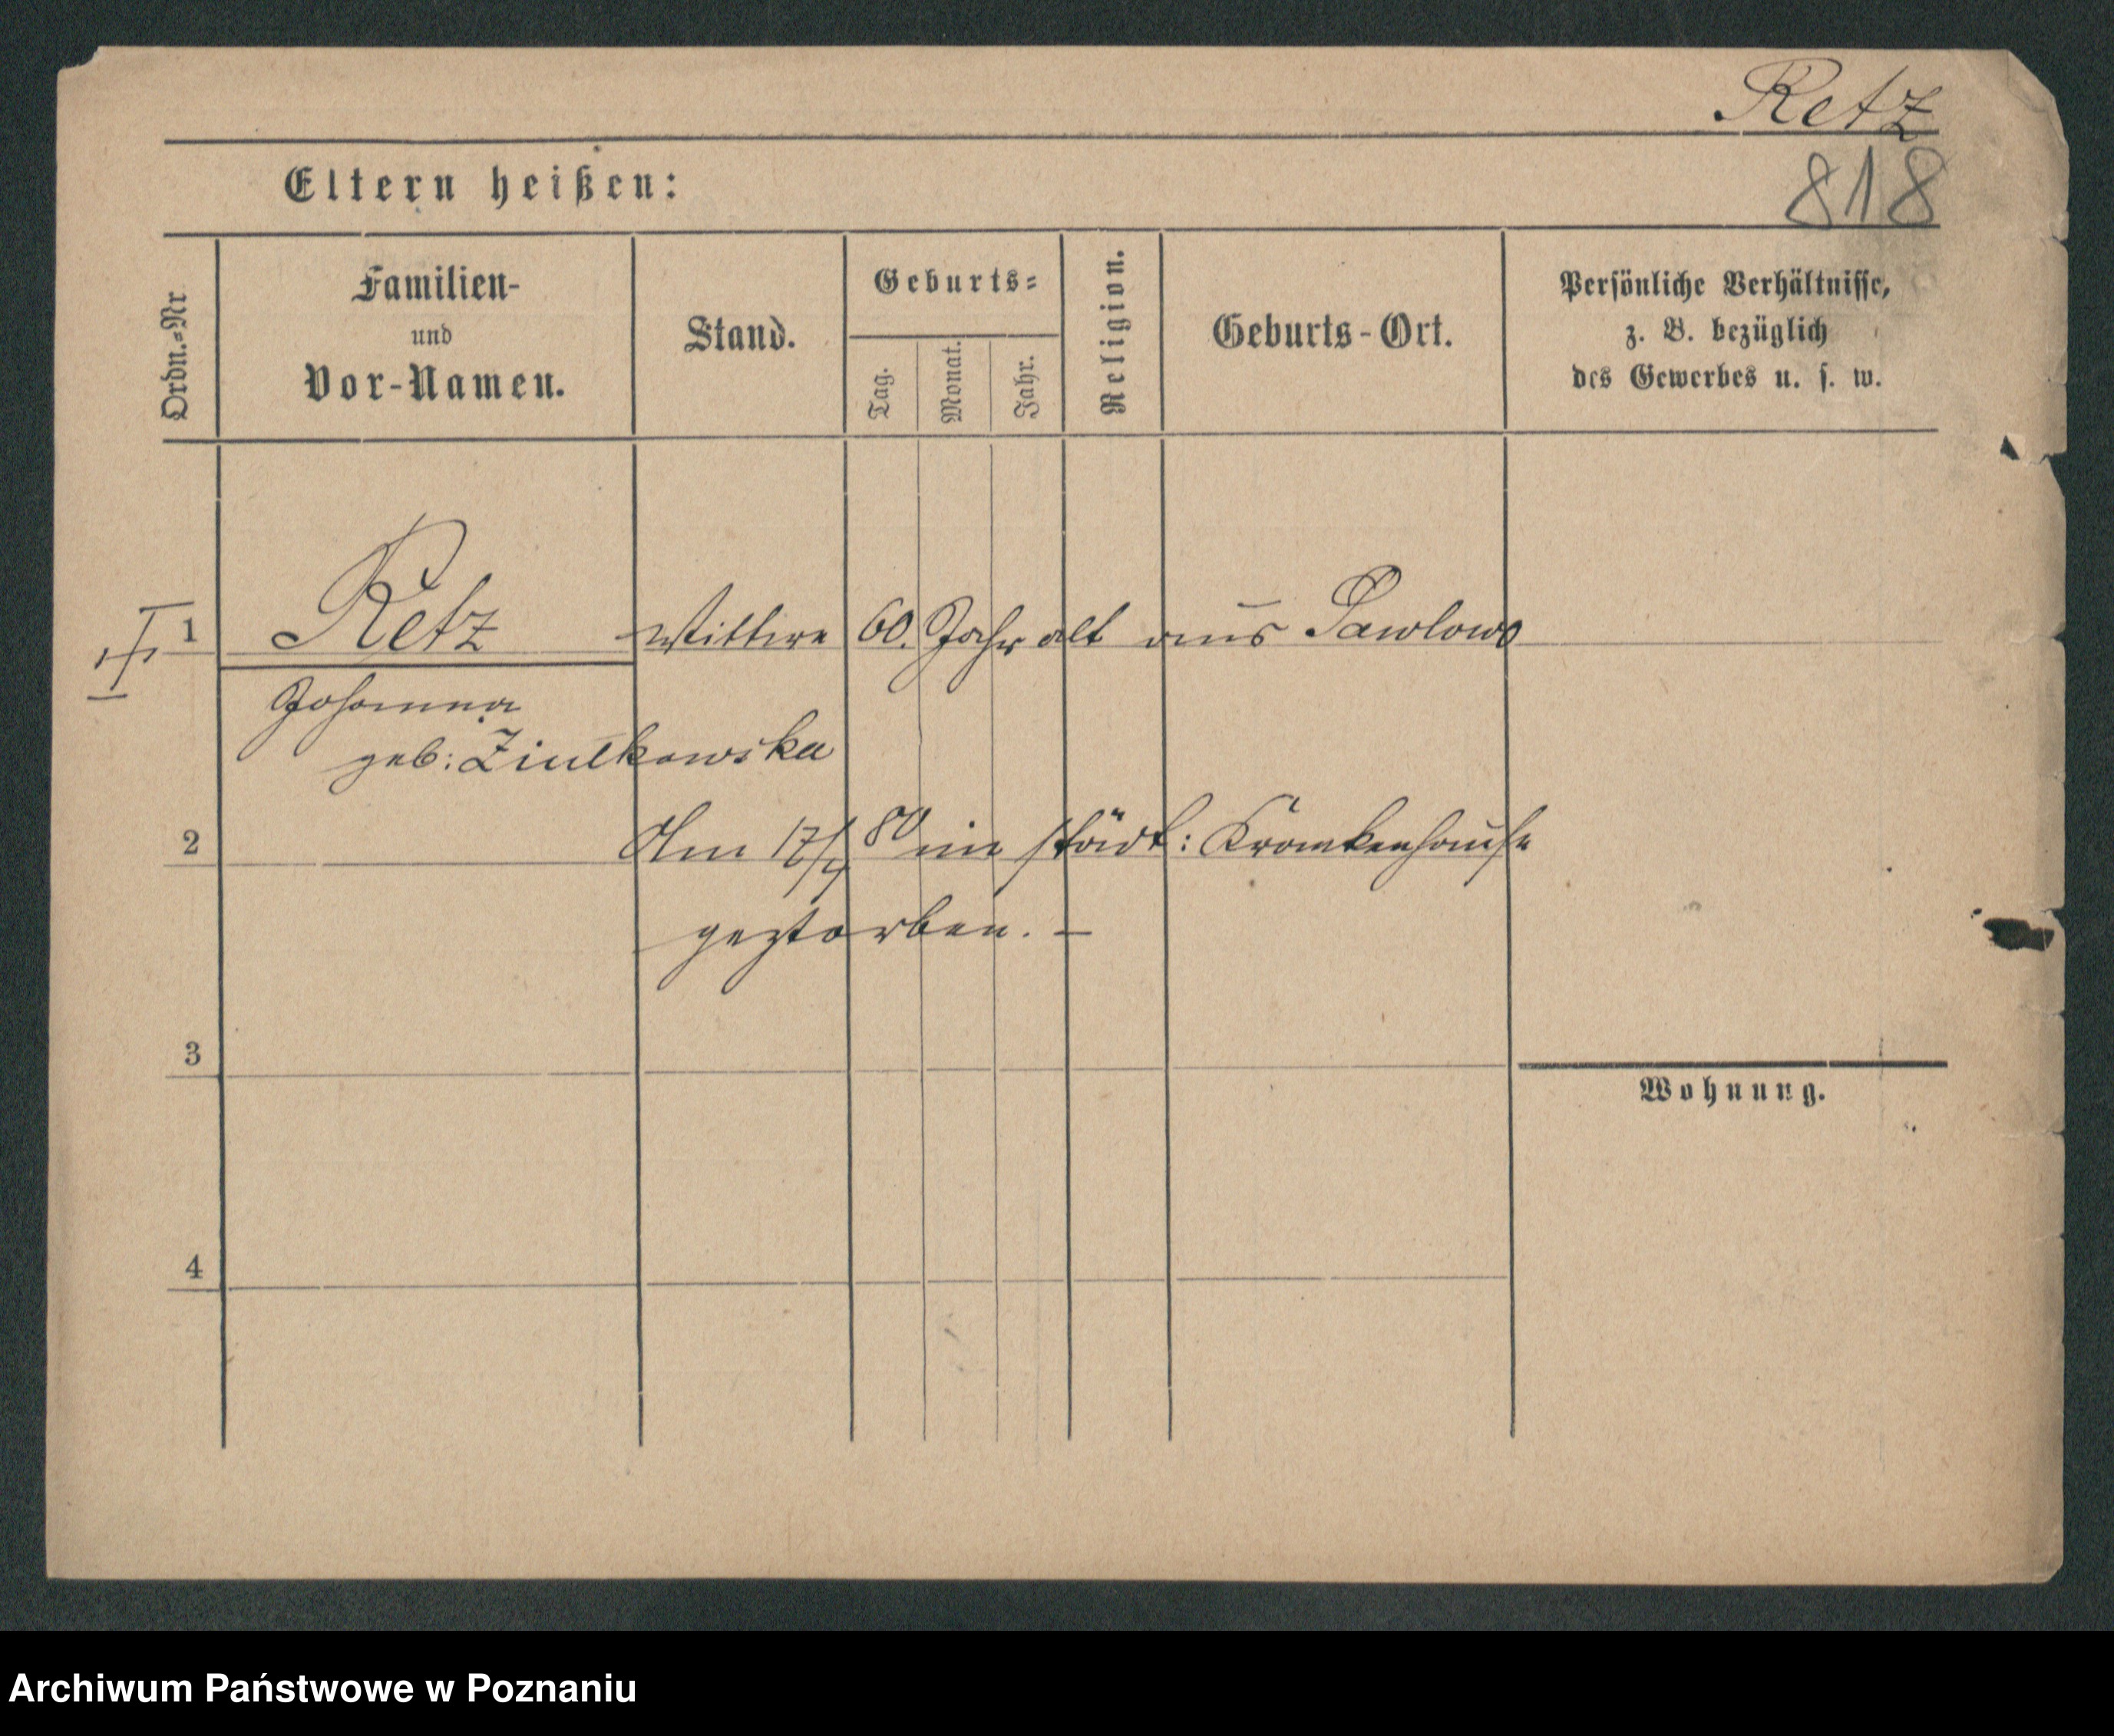 Retz
Eltern heißen:
818
Ordn.-Nr
Familien-
und
Vor-Namen.
Stand.
Geburts-
Tag.
Monat.
Jahr.
Religion.
Geburts-Ort.
Persönliche Verhältnisse,
z. B. bezüglich
des Gewerbes u. s. w.
1 Retz Wittwe 60. Jahr alt aus Pawlowo
Johanna
geb: Ziulkowska
2 Am 17/4 80 im städt: Krankenhause
gestorben. —
3
Wohnung.
4
Archiwum Państwowe w Poznaniu